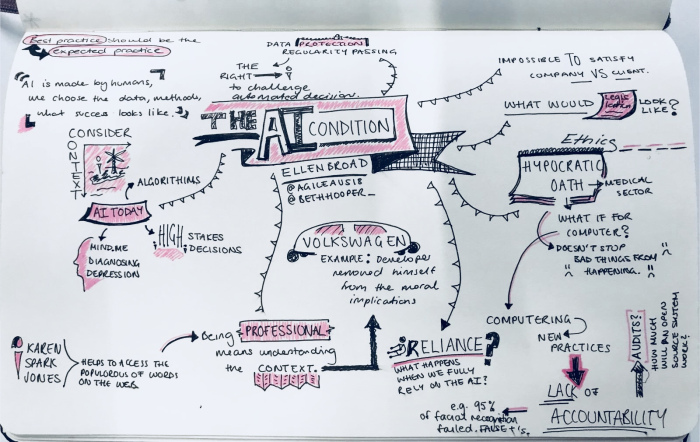 Best practice should be the
expected practice
"AI is made by humans,
we choose the data, methods,
what success looks like."
CONSIDER
CONTEXT
ALGORITHMS
AI TODAY
HIGH STAKES
DECISIONS
MIND.ME
DIAGNOSING
DEPRESSION
DATA PROTECTION
REGULARITY PASSING
THE
RIGHT
to challenge
automated decision.
THE AI CONDITION
ELLEN BROAD
@AGILEAUS18
@BETHHOOPER_
VOLKSWAGEN
EXAMPLE: Developer
removed himself
from the moral
implications
IMPOSSIBLE TO SATISFY
COMPANY VS CLIENT.
WHAT WOULD Legislation LOOK
LIKE?
Ethics
HYPOCRATIC
OATH
MEDICAL
SECTOR
WHAT IF FOR
COMPUTER?
DOESN'T STOP
BAD THINGS FROM
" HAPPENING. "
COMPUTERING
NEW
PRACTICES
LACK OF
ACCOUNTABILITY
AUDITS?
HOW MUCH
WILL AN OPEN
SOURCE SYSTEM
WORK?
KAREN
SPARK
JONES
HELPS TO ACCESS THE
POPULOROUS OF WORDS
ON THE WEB.
Being PROFESSIONAL
means understanding
the CONTEXT.
RELIANCE?
WHAT HAPPENS
WHEN WE FULLY
RELY ON THE AI?
e.g. 95%
of facial recognition
failed. FALSE +'s.